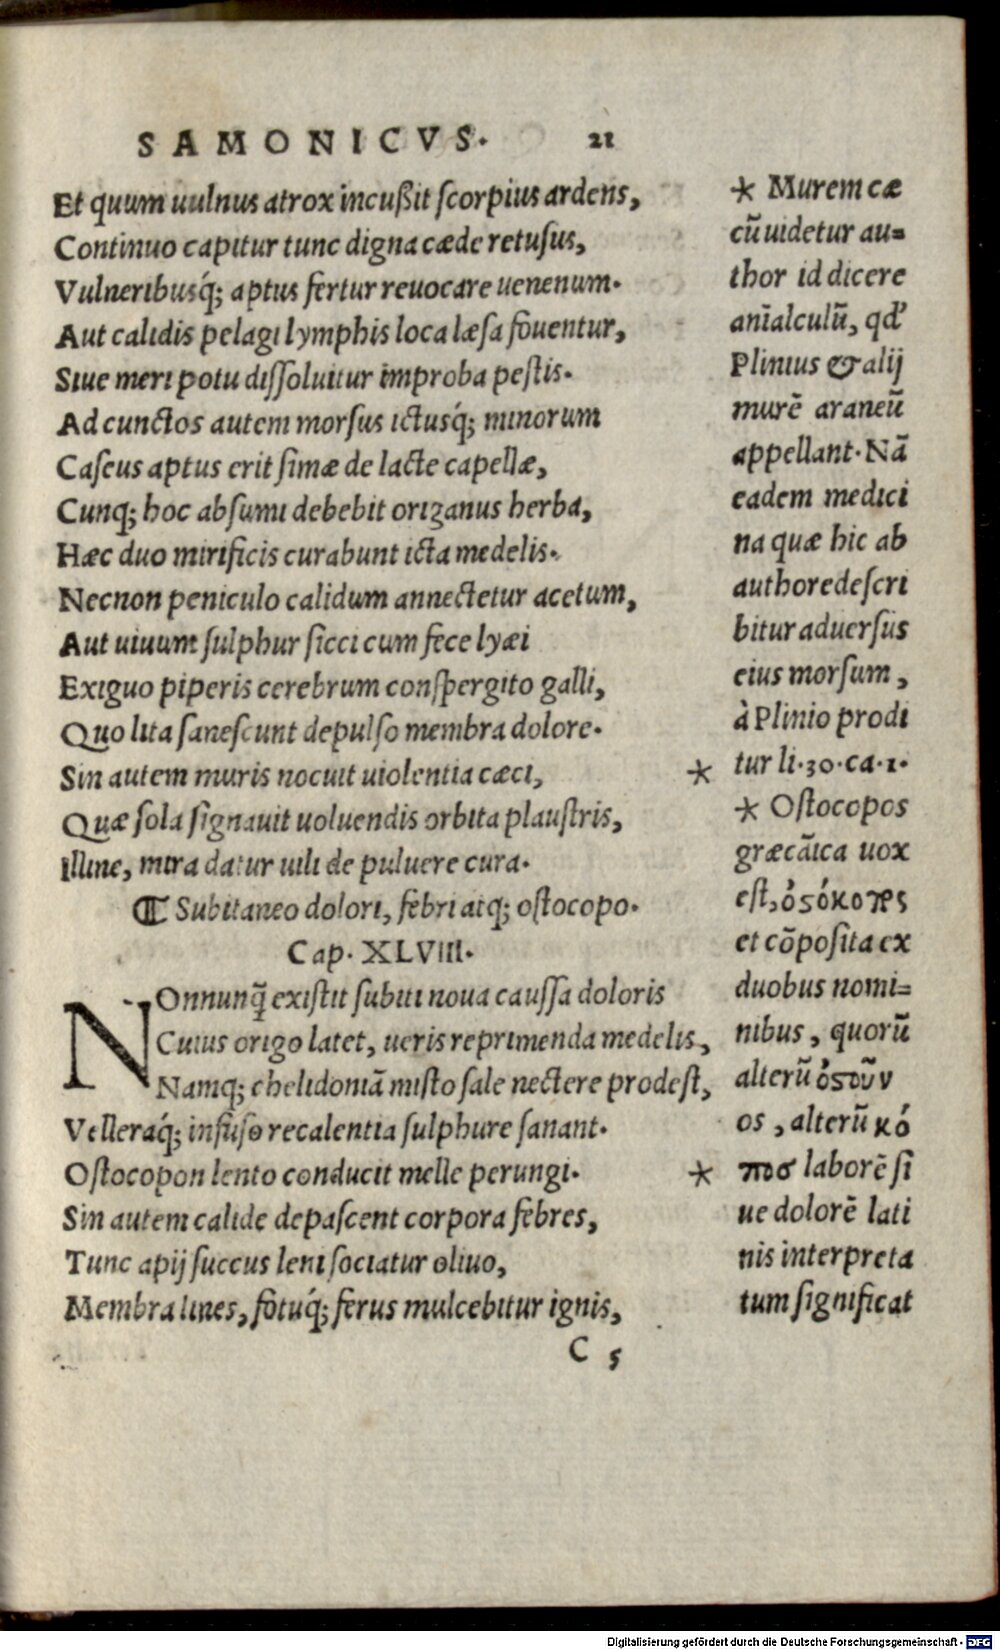 SAMONICVS. 21
Et quum uulnus atrox incußit scorpius ardens,
Continuo capitur tunc digna cæde retusus,
Vulneribusq́; aptus fertur reuocare uenenum.
Aut calidis pelagi lymphis loca læsa fouentur,
Siue meri potu dissoluitur improba pestis.
Ad cunctos autem morsus ictusq́; minorum
Caseus aptus erit simæ de lacte capellæ,
Cunq; hoc absumi debebit origanus herba,
Hæc duo mirificis curabunt icta medelis.
Necnon peniculo calidum annectetur acetum,
Aut uiuum sulphur sicci cum fece lyæi
Exiguo piperis cerebrum conspergito galli,
Quo lita sanescunt depulso membra dolore.
Sin autem muris nocuit uiolentia cæci, *
Quæ sola signauit uoluendis orbita plaustris,
Illine, mira datur uili de puluere cura.
⁋ Subitaneo dolori, febri atq; ostocopo.
Cap. XLVIII.
NOnnunq̃ existit subiti noua caussa doloris
Cuius origo latet, ueris reprimenda medelis,
Namq; chelidoniã misto sale nectere prodest,
Velleraq́; infuso recalentia sulphure sanant.
Ostocopon lento conducit melle perungi. *
Sin autem calide depascent corpora febres,
Tunc apij succus leni sociatur oliuo,
Membra lines, fotuq́; ferus mulcebitur ignis,
C 5
* Murem cæ
cũ uidetur au=
thor id dicere
anĩalculũ, qd'
Plinius & alij
murẽ araneũ
appellant. Nã
eadem medici
na quæ hic ab
authore descri
bitur aduersus
eius morsum,
à Plinio prodi
tur li. 30. ca. 1.
* Ostocopos
græcãica uox
est, ὀϛόκοπες
et cõposita ex
duobus nomi=
nibus, quorũ
alterũ ὀϛοῦν
os, alterũ κό
πος laborẽ si
ue dolorẽ lati
nis interpreta
tum significat
Digitalisierung gefördert durch die Deutsche Forschungsgemeinschaft - DFG